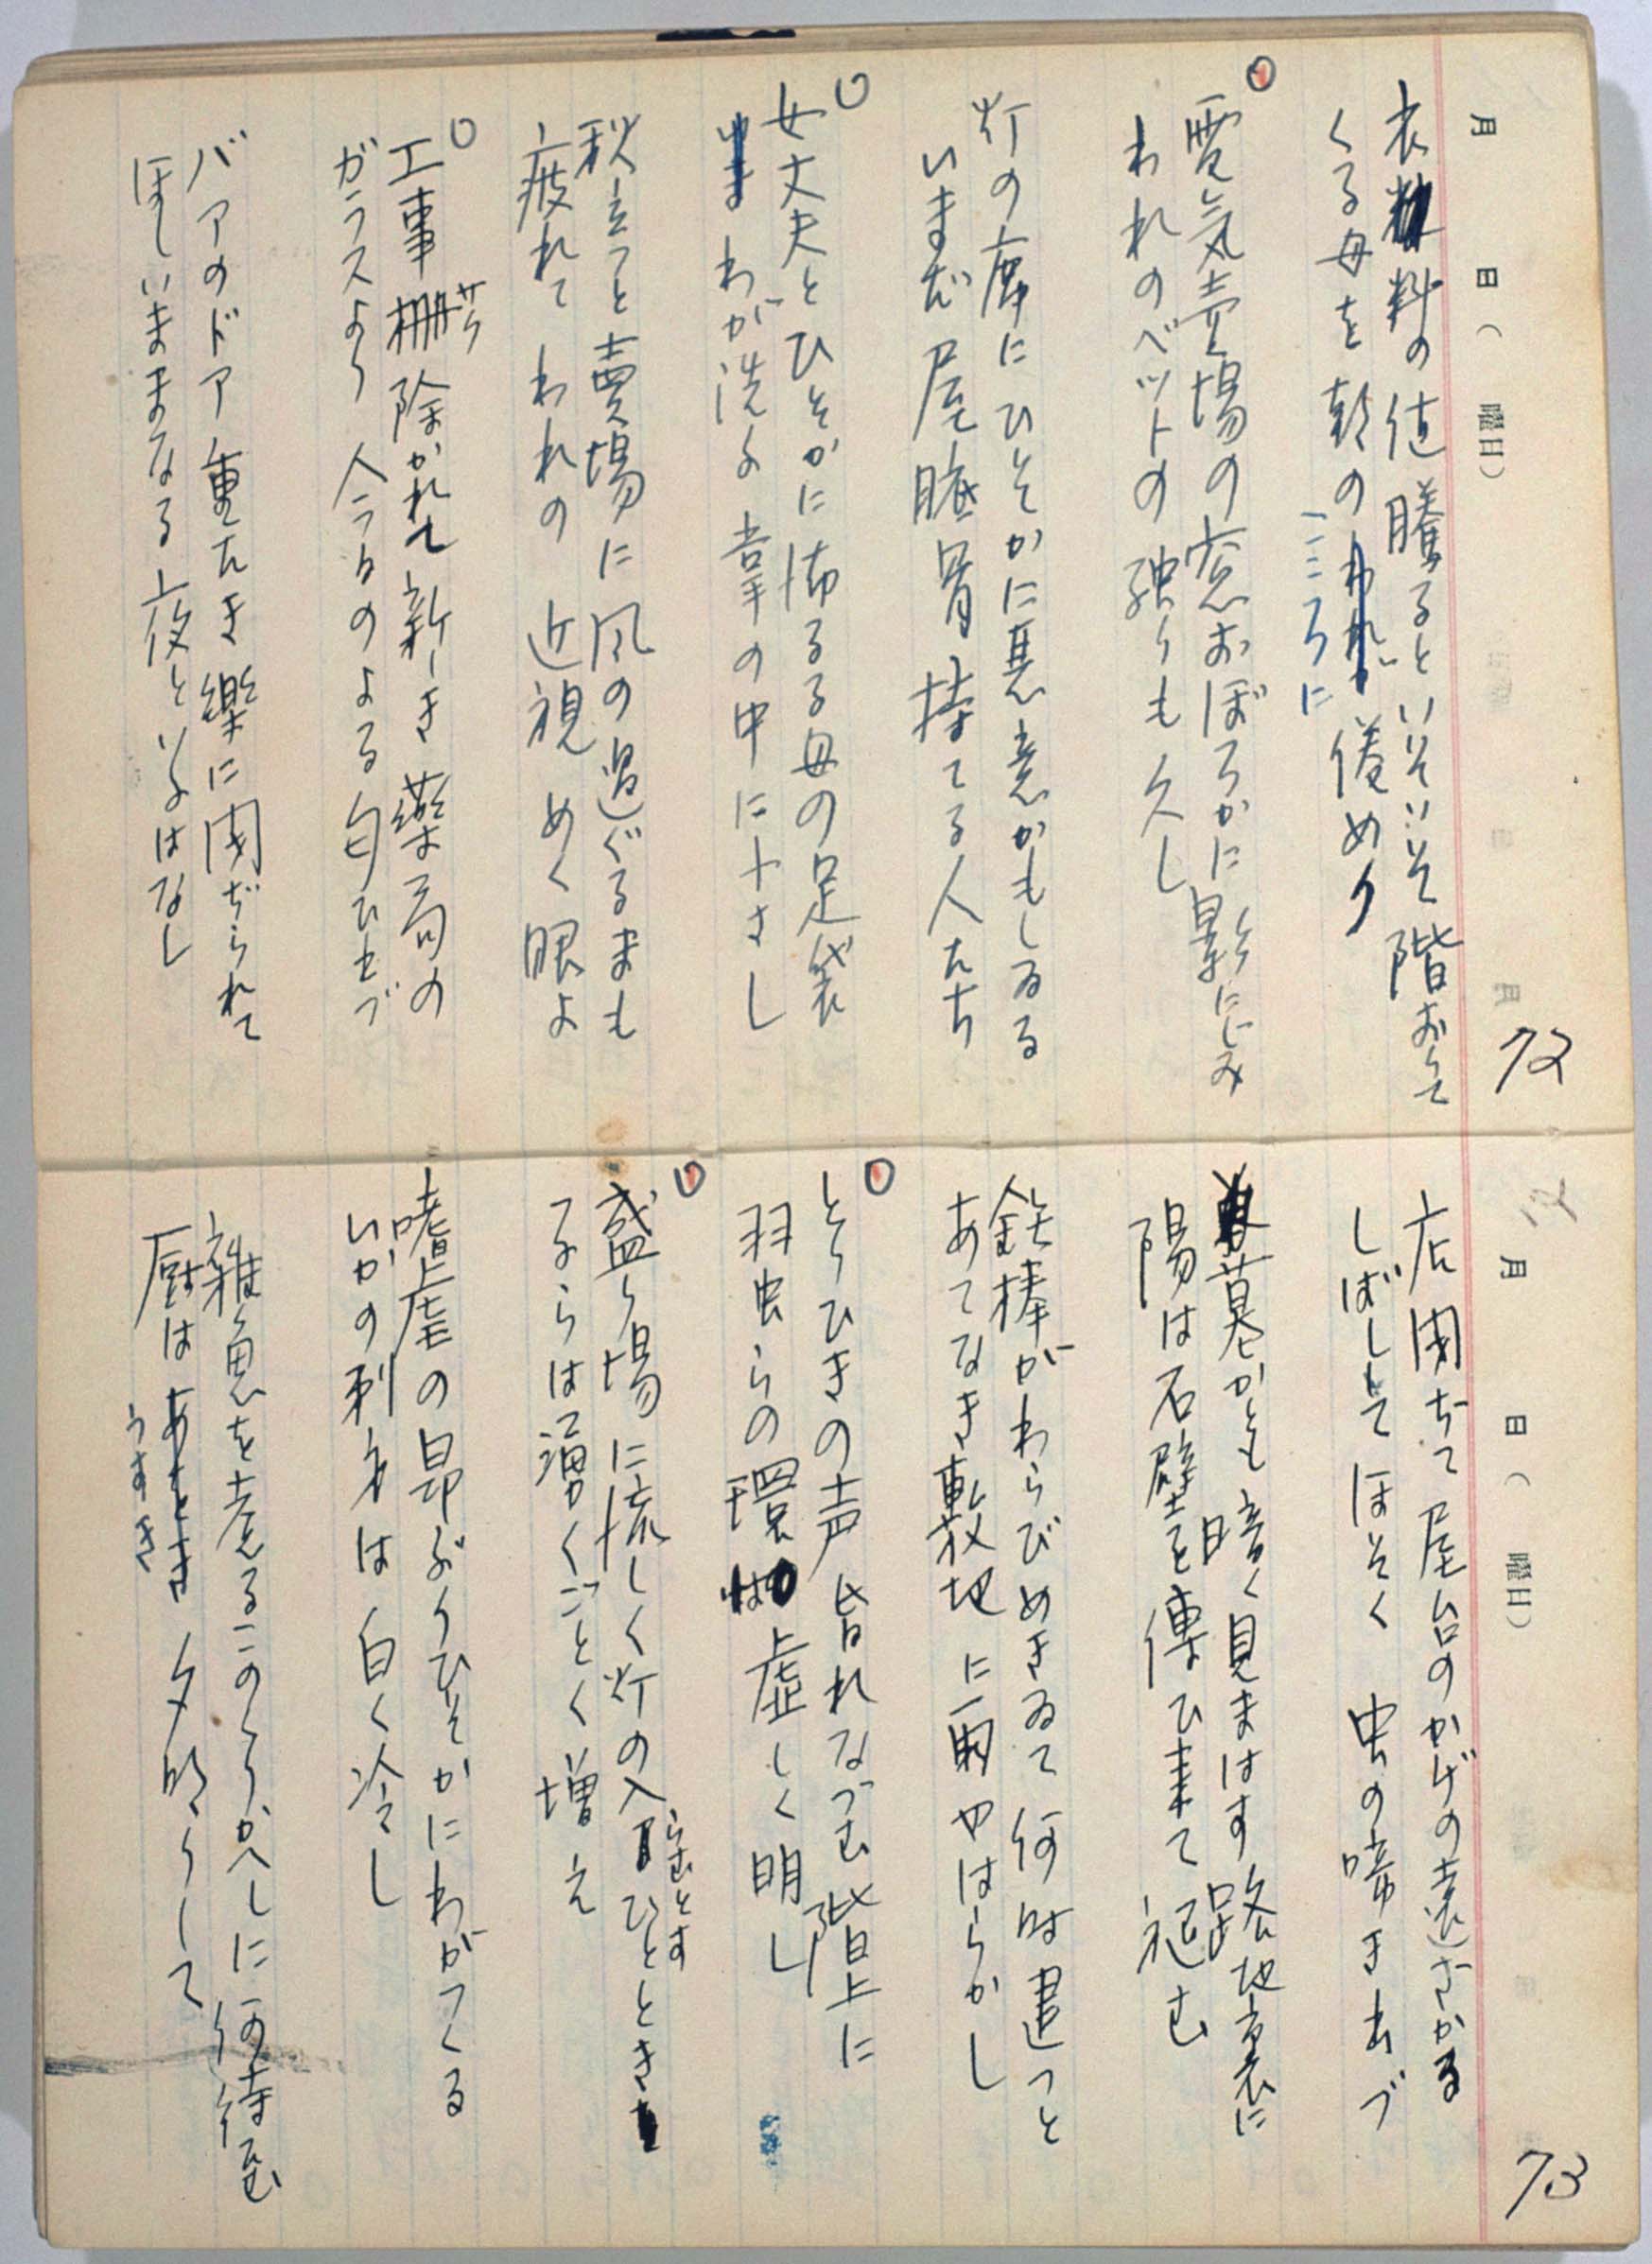 月　日（　曜日）
72
衣料の値騰るといそいそ階おりて
くる母を朝のわれが倦めり
こころに
電気売場の窓おぼろかに影にじみ
われのベットの独りも久し
灯の席にひそかに悪意かもしゐる
いまだ尾骶骨持てる人たち
女丈夫とひそかに怖るる母の足袋
わが洗ふ掌の中に小さし
秋立つと賣場に風の過ぐるまも
疲れて われの 近視めく眼よ
工事柵除かれて新しき藥局の
サク
ガラスより 人うものよる匂ひせづ
バアのドア重たき樂に閉ぢられて
ほしいままなる夜といふはなし
月　日（　曜日）
73
店閉ぢて屋台のかげの遠ざかる
しばしして ほそく 虫の啼き出づ
墓かとも暗く見まはす路地裏に
陽は石壁を傳ひ来て褪む
鉄棒がわらびめきゐて何時建つと
あてなき敷地に雨やはらかし
とりひきの声皆れなづむ階上に
羽虫らの環 虚しく明し
盛り場に流しく灯の入 ひととき
らむとす
つるらは湧くごとく増え
嗜虐の昂ぶりひそかにわがつくる
いかの刺身は白く冷し
雑魚を煮るこのくりかへしに何待む
厨はあをき夕明りして
うすき